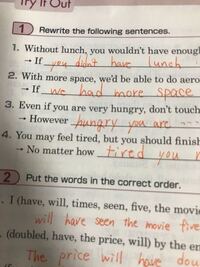 Try It Out
1 Rewrite the following sentences.
1. Without lunch, you wouldn't have enough
→ If you didn't have lunch
2. With more space, we'd be able to do aero
→ If we had more space
3. Even if you are very hungry, don't touch
→ However hungry you are ---
4. You may feel tired, but you should finish
→ No matter how tired you
2 Put the words in the correct order.
. I (have, will, times, seen, five, the movie
will have seen the movie five
. (doubled, have, the price, will) by the en
The price will have dou